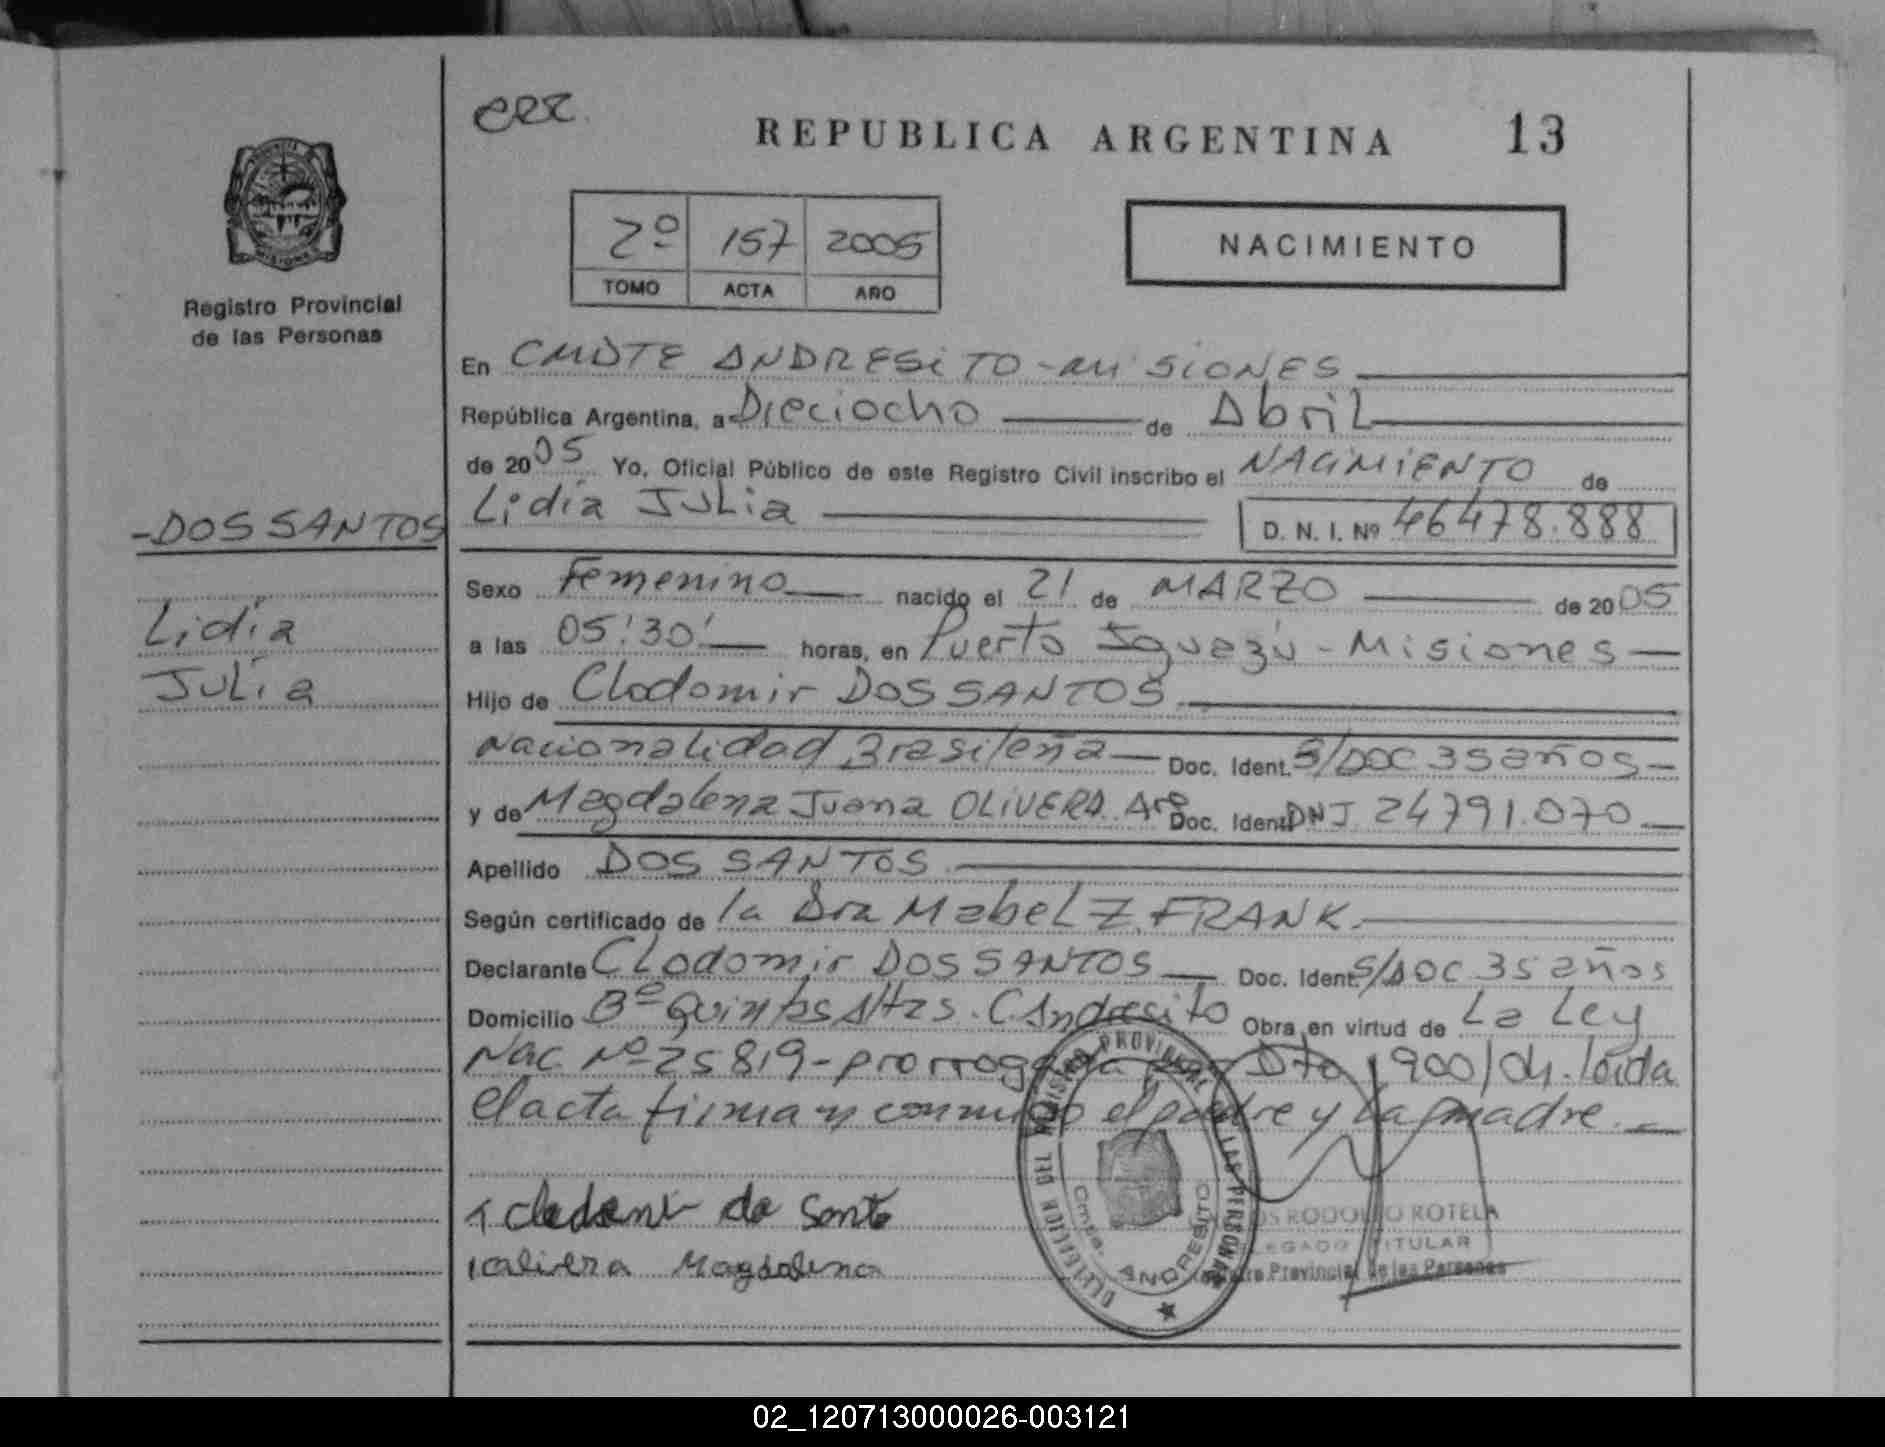 REPUBLICA ARGENTINA 13
2º 157 2005
TOMO ACTA AÑO
NACIMIENTO
PROVINCIA
MISIONES
Registro Provincial
de las Personas
-DOS SANTOS
Lidia
Julia
En CMDTE ANDRESiTO - Misiones
República Argentina, a Dieciocho de Abril
de 2005 Yo, Oficial Público de este Registro Civil inscribo el NACiMiENTO de
Lidia Julia D. N. I. Nº 46478.888
Sexo Femenino nacido el 21 de MARZO de 2005
a las 05:30' horas, en Puerto Iguazú - Misiones
Hijo de Clodomir DOS SANTOS
Nacionalidad Brasileña Doc. Ident. S/DOC 35 años
y de Magdalena Juana OLIVERA Arg Doc. Ident. DNI 24791.070
Apellido DOS SANTOS
Según certificado de la Dra Mabel Z. FRANK.
Declarante Clodomir DOS SANTOS Doc. Ident. S/DOC 35 años
Domicilio Bº Quintas Altas. C. Andresito Obra en virtud de La Ley
Nac Nº 25819 - prorrogada por Dto 1900/04. loida
el acta firman conmigo el padre y la madre.
DELEGACION DEL REGISTRO PROVINCIAL DE LAS PERSONAS
Cmte. ANDRESITO
RODOLFO ROTELA
DELEGADO TITULAR
Registro Provincial de las Personas
olivera Magdalena
02_120713000026-003121